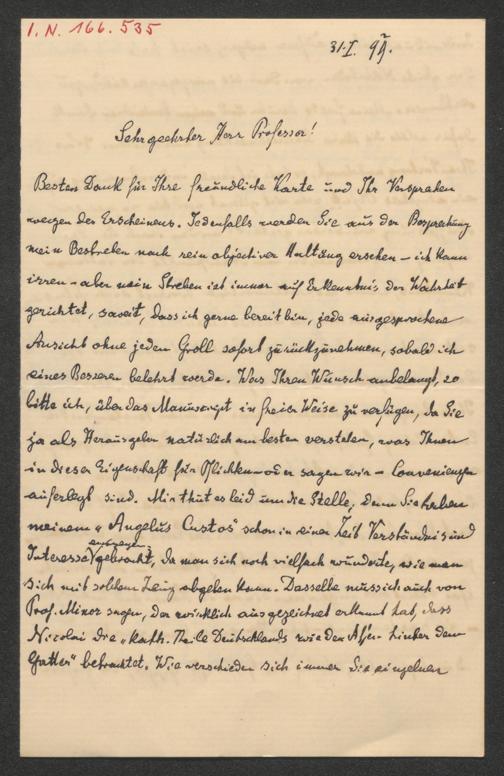 I. N. 166.535
31. I. 99.
Sehrgeehrter Herr Professor!
Besten Dank für Ihre freundliche Karte und Ihr Versprechen
wegen des Erscheinens. Jedenfalls werden Sie aus der Besprechung
mein Bestreben nach rein objectiver Haltung ersehen – ich kann
irren – aber mein Streben ist immer auf Erkenntnis der Wahrheit
gerichtet, soweit, dass ich gerne bereit bin, jede ausgesprochene
Ansicht ohne jeden Groll sofort zurückzunehmen, sobald ich
eines Besseren belehrt werde. Was Ihren Wunsch anbelangt, so
bitte ich, über das Manuscript in freier Weise zu verfügen, da Sie
ja als Herausgeber natürlich am besten verstehen, was Ihnen
in dieser Eigenschaft für Pflichten – oder sagen wir – Convenienzen
auferlegt sind. Mir thut es leid um die Stelle, denn Sie haben
meinem „Angelus Custos" schon in einer Zeit Verständnis und
Interesse entgegen gebracht, da man sich noch vielfach wunderte, wie man
sich mit solchem Zeug abgeben kann. Dasselbe muss ich auch von
Prof. Minor sagen, der wirklich ausgezeichnet erkannt hat, dass
Nicolai die „kath. Theile Deutschlands wie den Affen hinter dem
Gatter" betrachtet. Wie verschieden sich immer Sie einzelnen